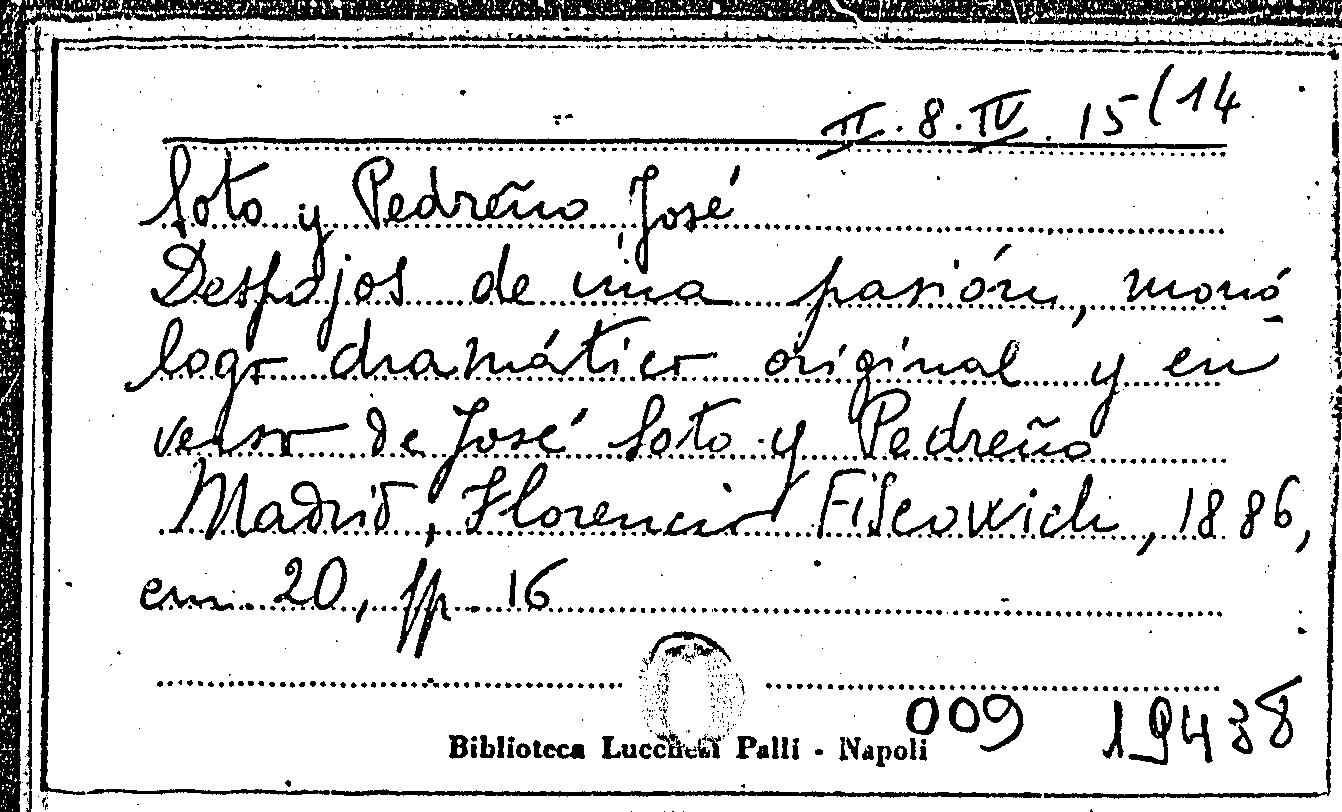 II.8.IV.15(14
Soto y Pedreño José
Despojos de una pasión, monó-
logo dramático original y en
verso de José Soto y Pedreño
Madrid, Florencio Fiscowich, 1886,
cm. 20, pp. 16
009 19438
Biblioteca Lucchesi Palli - Napoli